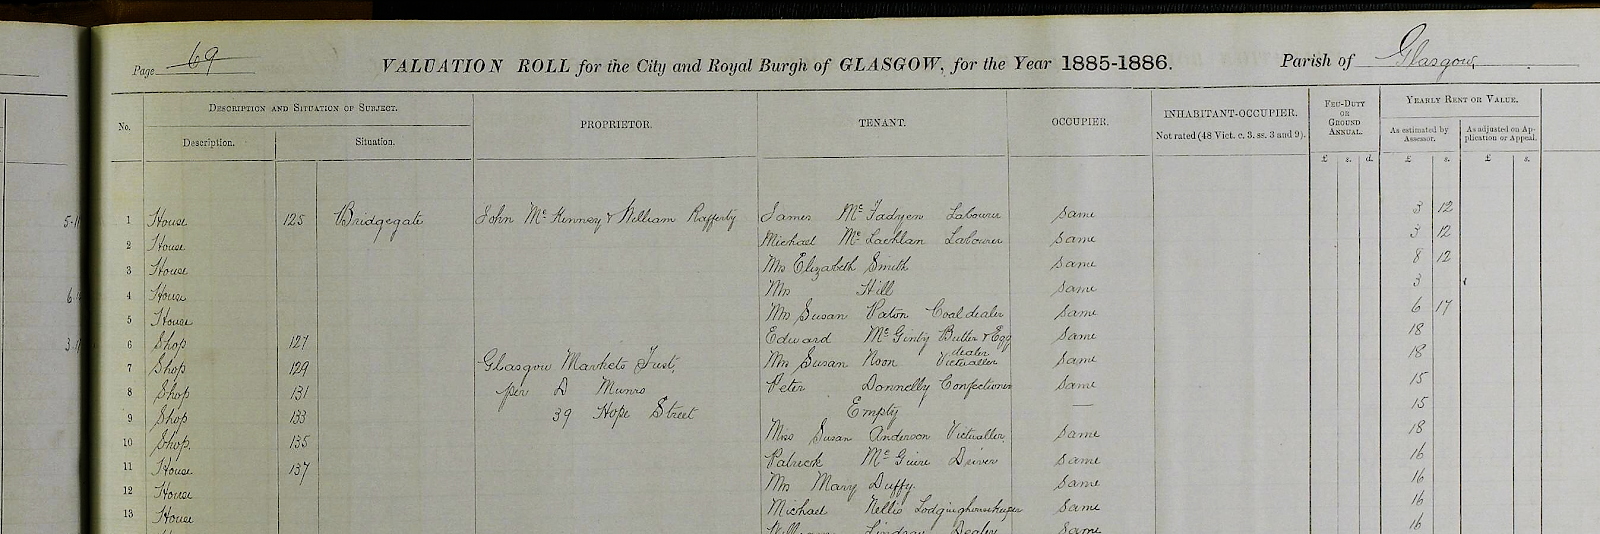 Page 69 VALUATION ROLL for the City and Royal Burgh of GLASGOW, for the Year 1885-1886. Parish of Glasgow
No. DESCRIPTION AND SITUATION OF SUBJECT. PROPRIETOR. TENANT. OCCUPIER. INHABITANT-OCCUPIER. FEU-DUTY OR GROUND ANNUAL. YEARLY RENT OR VALUE.
Description. Situation. Not rated (48 Vict. c. 3. ss. 3 and 9). As estimated by Assessor. As adjusted on Application or Appeal.
£ s. d. £ s. £ s.
1 House 125 Bridgegate John Mc Kenney & William Rafferty James Mc Fadyen Labourer Same 3 12
2 House Michael Mc Lachlan Labourer Same 3 12
3 House Mrs Elizabeth Smith Same 8 12
4 House Mrs Hill Same 3
5 House Mrs Susan Paton Coaldealer Same 6 17
6 Shop 127 Edward Mc Ginty Butter & Egg dealer Same 18
7 Shop 129 Glasgow Markets Trust, Mrs Susan Noon Victualler Same 18
8 Shop 131 per D Munro Peter Donnelly Confectioner Same 15
9 Shop 133 39 Hope Street Empty — 15
10 Shop. 135 Miss Susan Anderson Victualler Same 18
11 House 137 Patrick Mc Guire Driver Same 16
12 House Mrs Mary Duffy Same 16
13 House Michael Nellis Lodginghousekeeper Same 16
William Lindsay Dealer Same 16